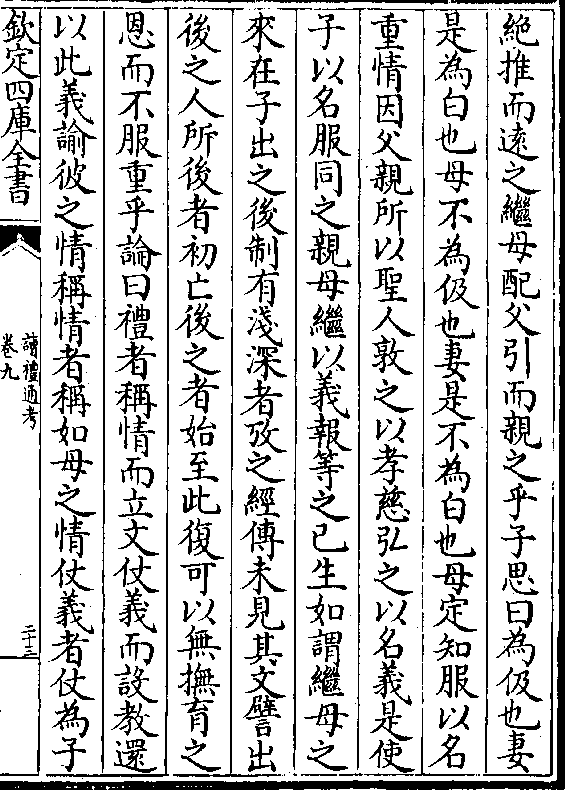 絶推而遠之繼母配父引而親之乎子思曰為伋也妻
是為白也母不為伋也妻是不為白也母定知服以名
重情因父親所以聖人敦之以孝慈弘之以名義是使
子以名服同之親母繼以義報等之己生如謂繼母之
來在子出之後制有淺深者攷之經傳未見其文譬出
後之人所後者初亡後之者始至此復可以無撫育之
恩而不服重乎論曰禮者稱情而立文仗義而設教還
以此義諭彼之情稱情者稱如母之情仗義者仗為子
欽定四庫全書
讀禮通考
卷九
二十三